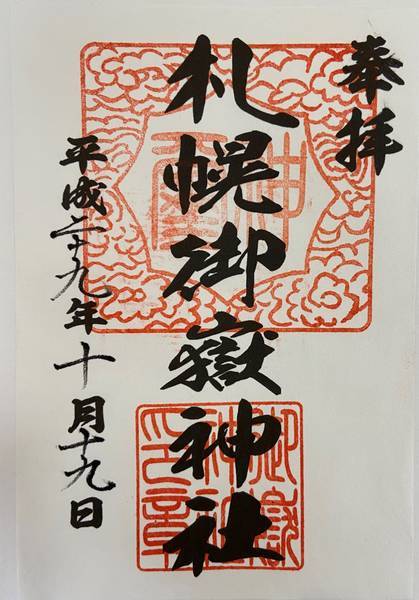 奉拝
札幌御嶽神社
平成二十九年十月十九日